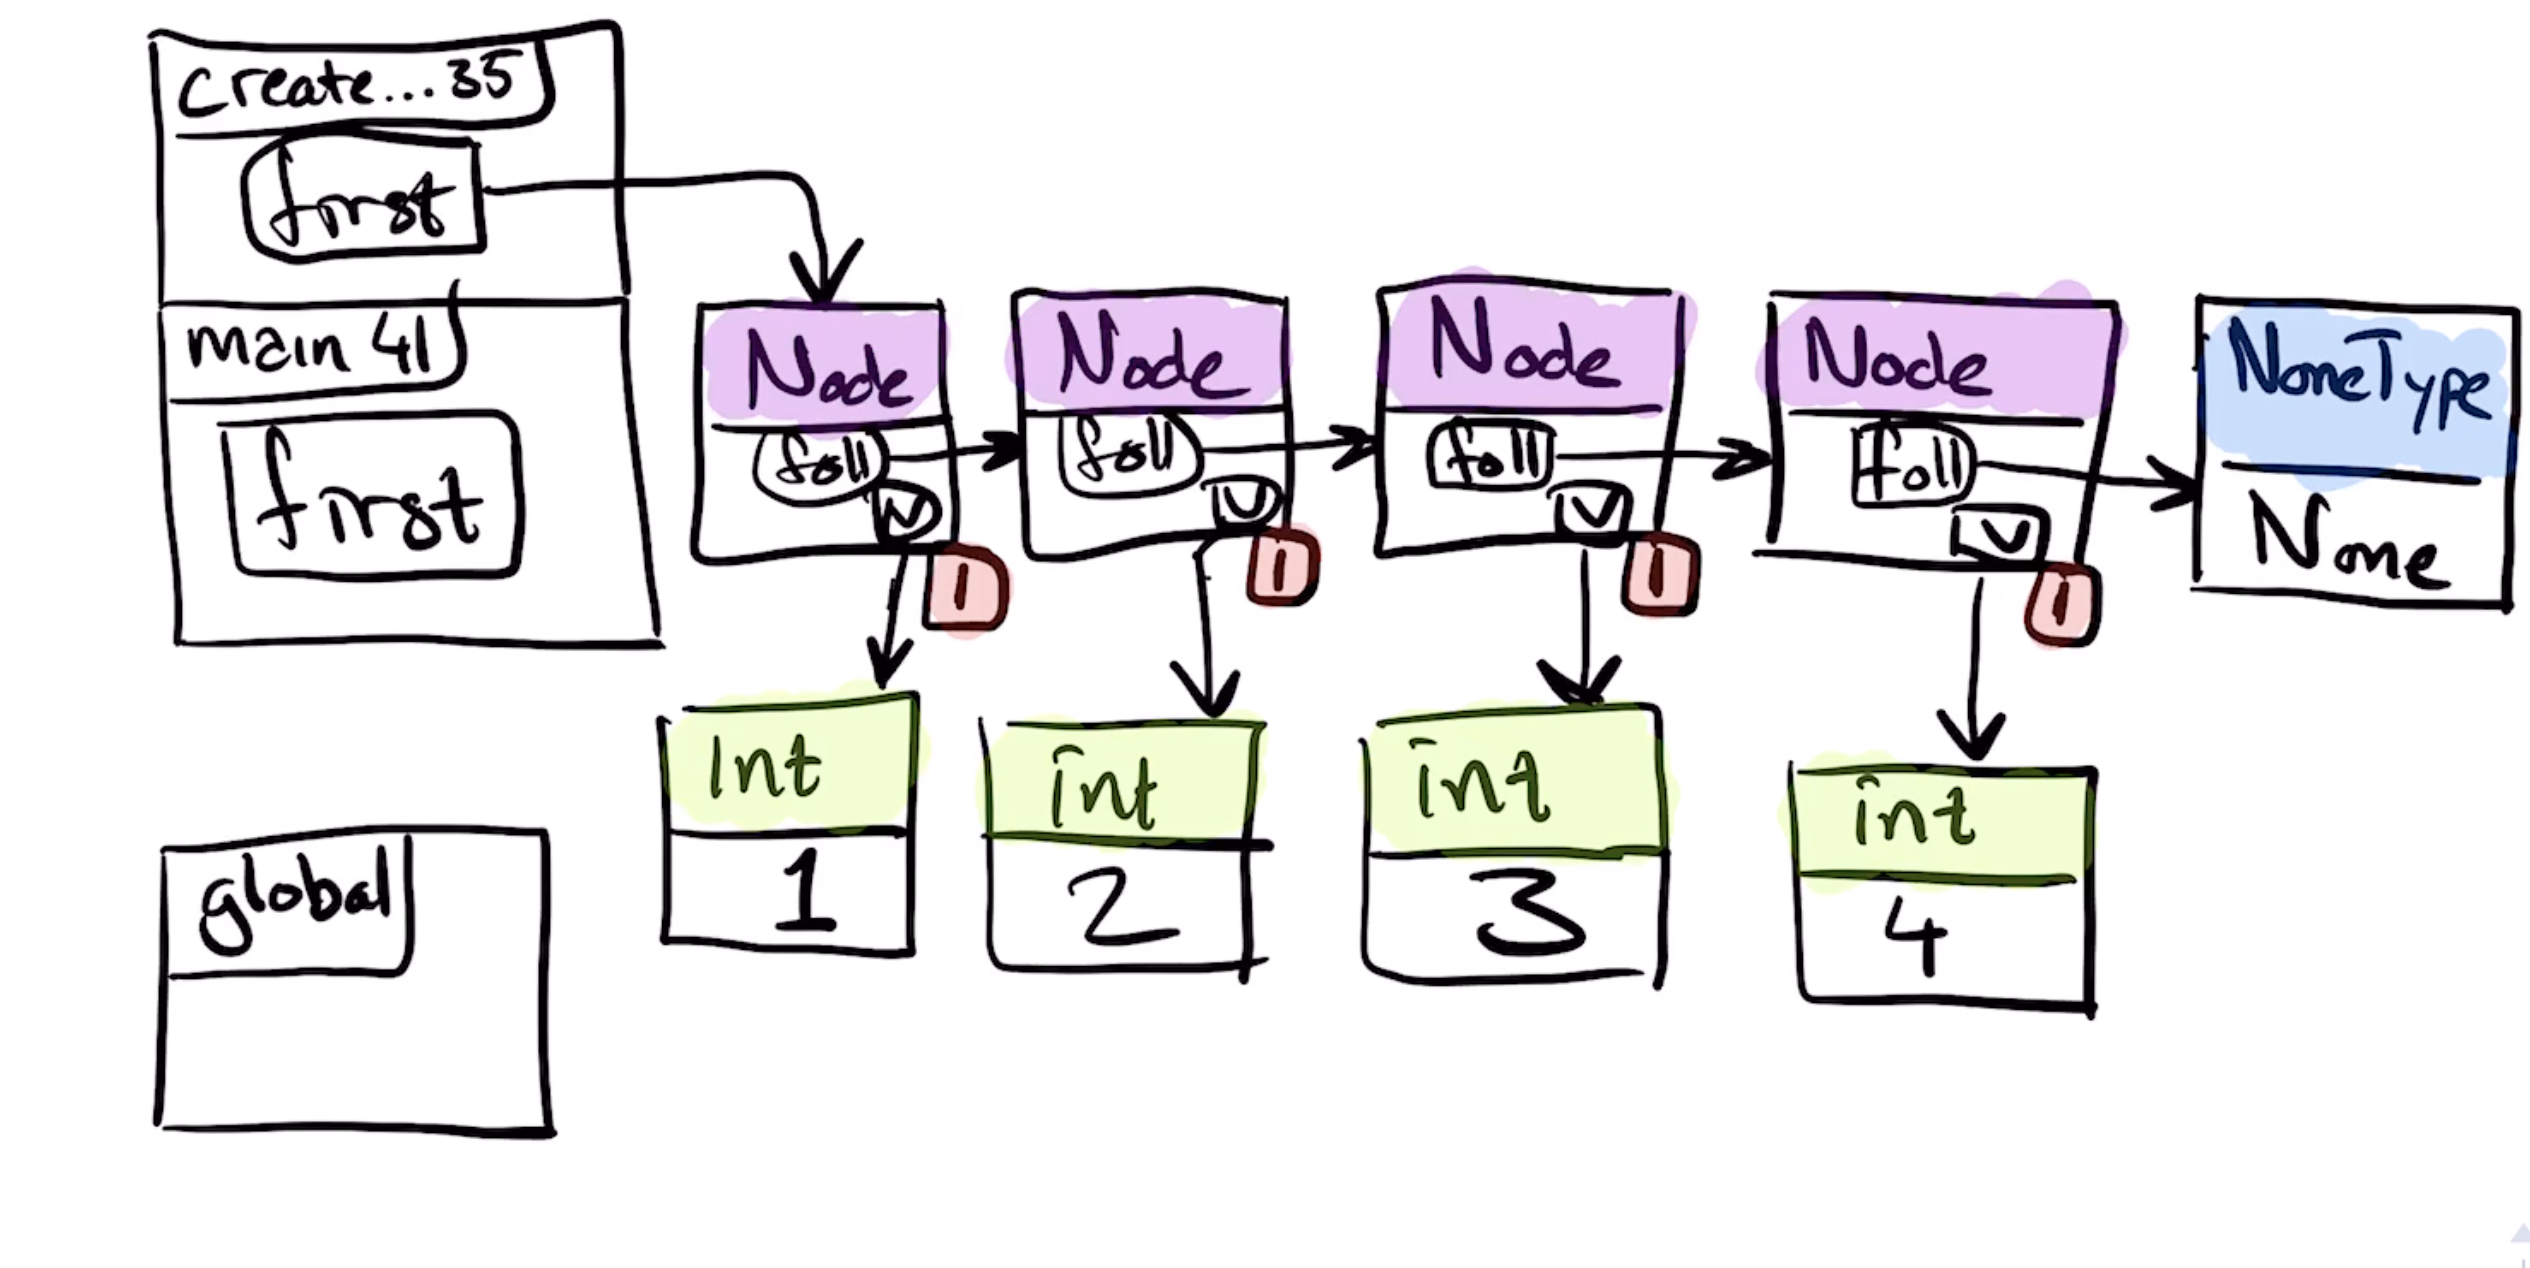 create... 35
first
main 41
first
Node
foll
v
1
Node
foll
v
1
Node
foll
v
1
Node
foll
v
1
NoneType
None
Int
1
int
2
int
3
int
4
global